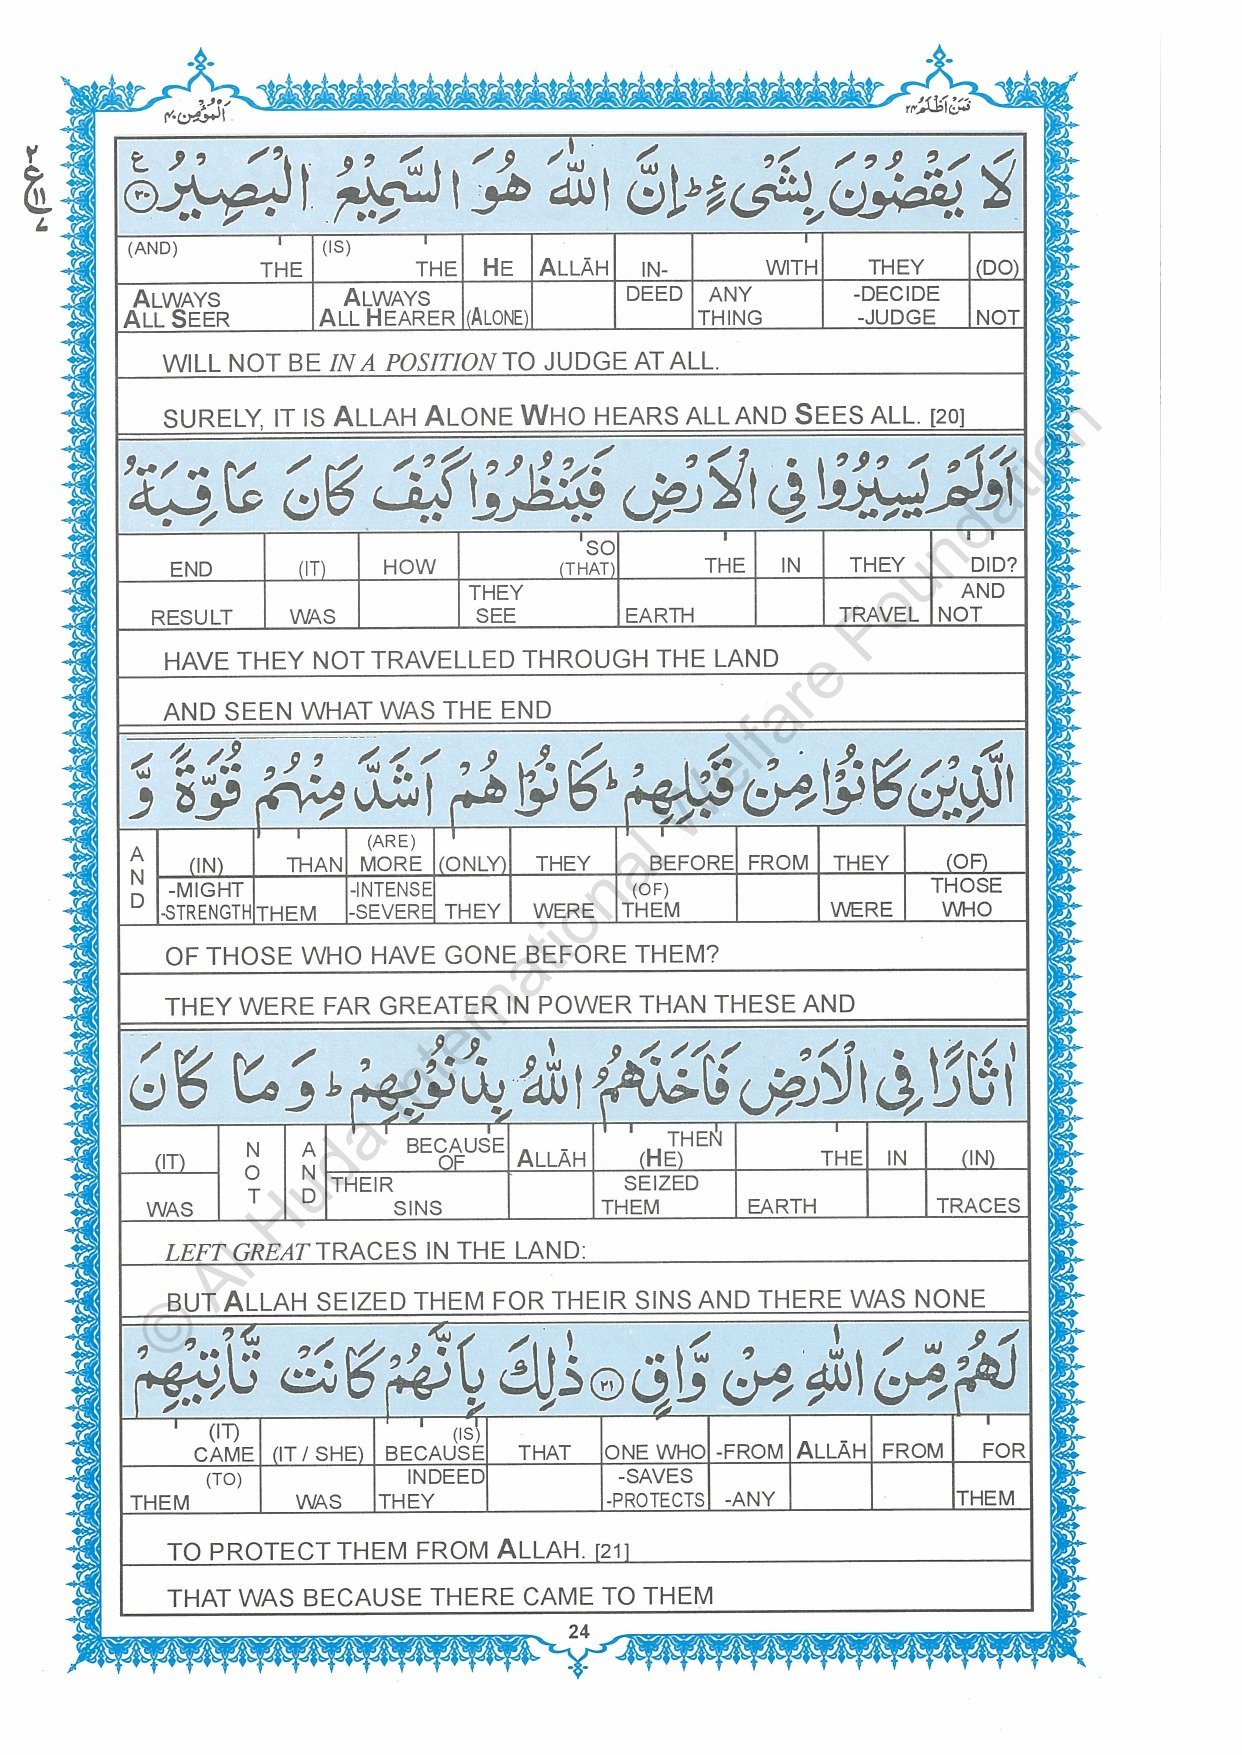 اَلْمُؤْمِن ٤٠
فَمَنْ اَظْلَمُ ٢٤
٢
ع
١١
٧
لَا يَقْضُوْنَ بِشَىْءٍ ؕ اِنَّ اللّٰهَ هُوَ السَّمِيْعُ الْبَصِيْرُ ٢٠ ع
(AND) THE (IS) THE HE ALLĀH IN- WITH THEY (DO)
ALWAYS ALL SEER ALWAYS ALL HEARER (ALONE) DEED ANY THING -DECIDE -JUDGE NOT
WILL NOT BE IN A POSITION TO JUDGE AT ALL.
SURELY, IT IS ALLAH ALONE WHO HEARS ALL AND SEES ALL. [20]
اَوَلَمْ يَسِيْرُوْا فِى الْاَرْضِ فَيَنْظُرُوْا كَيْفَ كَانَ عَاقِبَةُ
END (IT) HOW SO (THAT) THE IN THEY DID?
RESULT WAS THEY SEE EARTH TRAVEL AND NOT
HAVE THEY NOT TRAVELLED THROUGH THE LAND
AND SEEN WHAT WAS THE END
الَّذِيْنَ كَانُوْا مِنْ قَبْلِهِمْ ؕ كَانُوْا هُمْ اَشَدَّ مِنْهُمْ قُوَّةً وَّ
AND (IN) THAN (ARE) MORE (ONLY) THEY BEFORE FROM THEY (OF)
-MIGHT -STRENGTH THEM -INTENSE -SEVERE THEY WERE (OF) THEM WERE THOSE WHO
OF THOSE WHO HAVE GONE BEFORE THEM?
THEY WERE FAR GREATER IN POWER THAN THESE AND
اٰثَارًا فِى الْاَرْضِ فَاَخَذَهُمُ اللّٰهُ بِذُنُوْبِهِمْ ؕ وَ مَا كَانَ
(IT) NOT AND BECAUSE OF ALLĀH THEN (HE) THE IN (IN)
WAS THEIR SINS SEIZED THEM EARTH TRACES
LEFT GREAT TRACES IN THE LAND:
BUT ALLAH SEIZED THEM FOR THEIR SINS AND THERE WAS NONE
لَهُمْ مِّنَ اللّٰهِ مِنْ وَّاقٍ ٢١ ذٰلِكَ بِاَنَّهُمْ كَانَتْ تَّاْتِيْهِمْ
(IT) CAME (IT / SHE) (IS) BECAUSE THAT ONE WHO -FROM ALLĀH FROM FOR
(TO) THEM WAS INDEED THEY -SAVES -PROTECTS -ANY THEM
TO PROTECT THEM FROM ALLAH. [21]
THAT WAS BECAUSE THERE CAME TO THEM
24
© Al Huda International Welfare Foundation